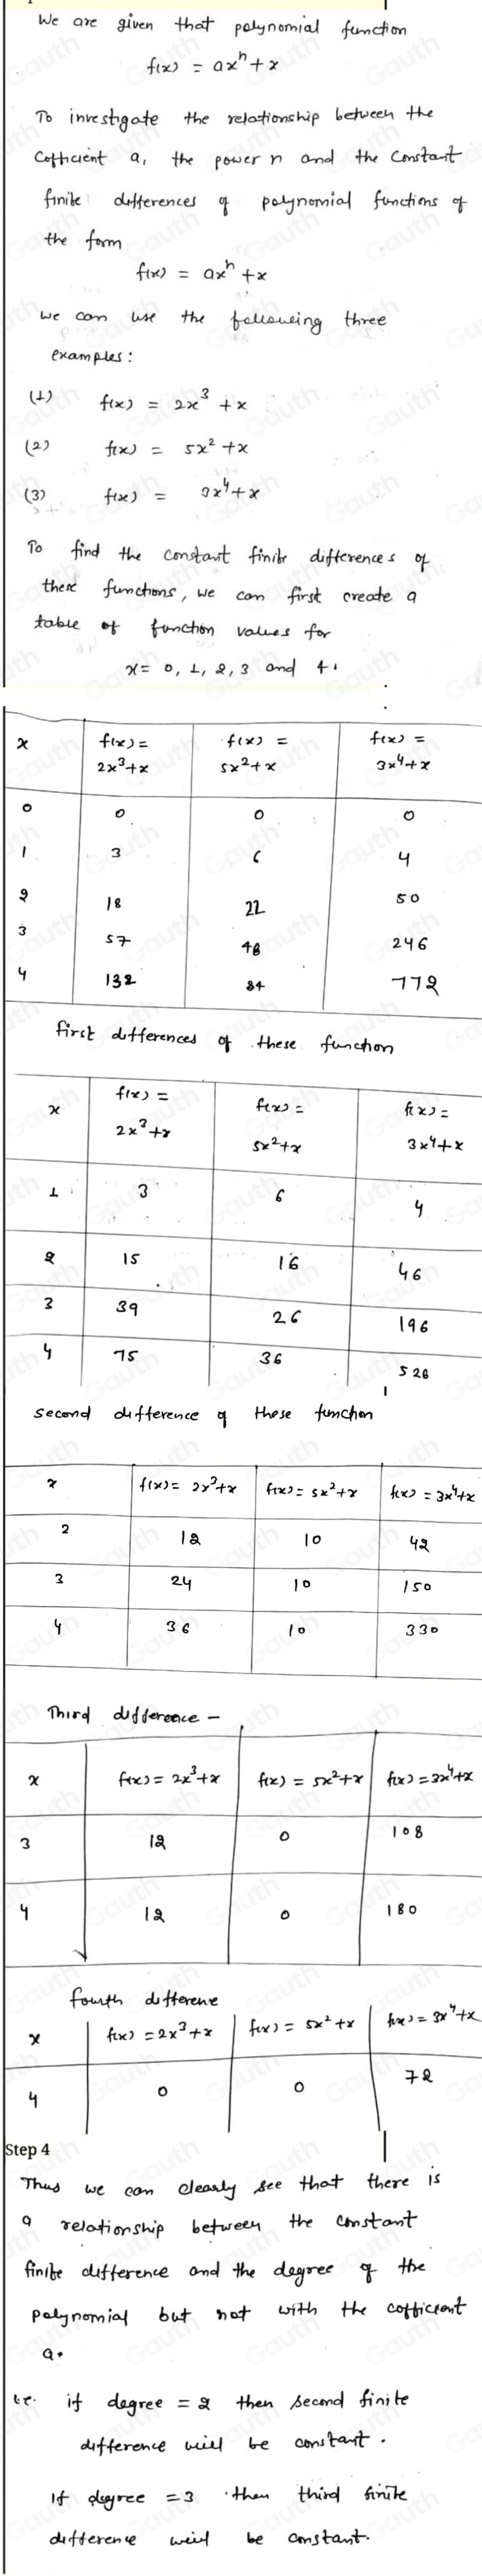 We are given that polynomial function
f(x) = ax^n + x
To investigate the relationship between the
Cofficient a, the power n and the Constant
finite differences of polynomial functions of
the form
f(x) = ax^n + x
we can use the following three
examples:
(1) f(x) = 2x^3 + x
(2) f(x) = 5x^2 + x
(3) f(x) = 3x^4 + x
To find the constant finite differences of
these functions, we can first create a
table of function values for
x = 0, 1, 2, 3 and 4.
x f(x) = 2x^3+x f(x) = 5x^2+x f(x) = 3x^4+x
0 0 0 0
1 3 6 4
2 18 22 50
3 57 48 246
4 132 84 772
first differences of these function
x f(x) = 2x^3+x f(x) = 5x^2+x f(x) = 3x^4+x
1 3 6 4
2 15 16 46
3 39 26 196
4 75 36 526
second difference of these function
x f(x) = 2x^3+x f(x) = 5x^2+x f(x) = 3x^4+x
2 12 10 42
3 24 10 150
4 36 10 330
Third difference -
x f(x) = 2x^3+x f(x) = 5x^2+x f(x) = 3x^4+x
3 12 0 108
4 12 0 180
fourth difference
x f(x) = 2x^3+x f(x) = 5x^2+x f(x) = 3x^4+x
4 0 0 72
Step 4
Thus we can clearly see that there is
a relationship between the constant
finite difference and the degree of the
polynomial but not with the cofficient
a.
i.e. if degree = 2 then second finite
difference will be constant.
If degree = 3 then third finite
difference will be constant.